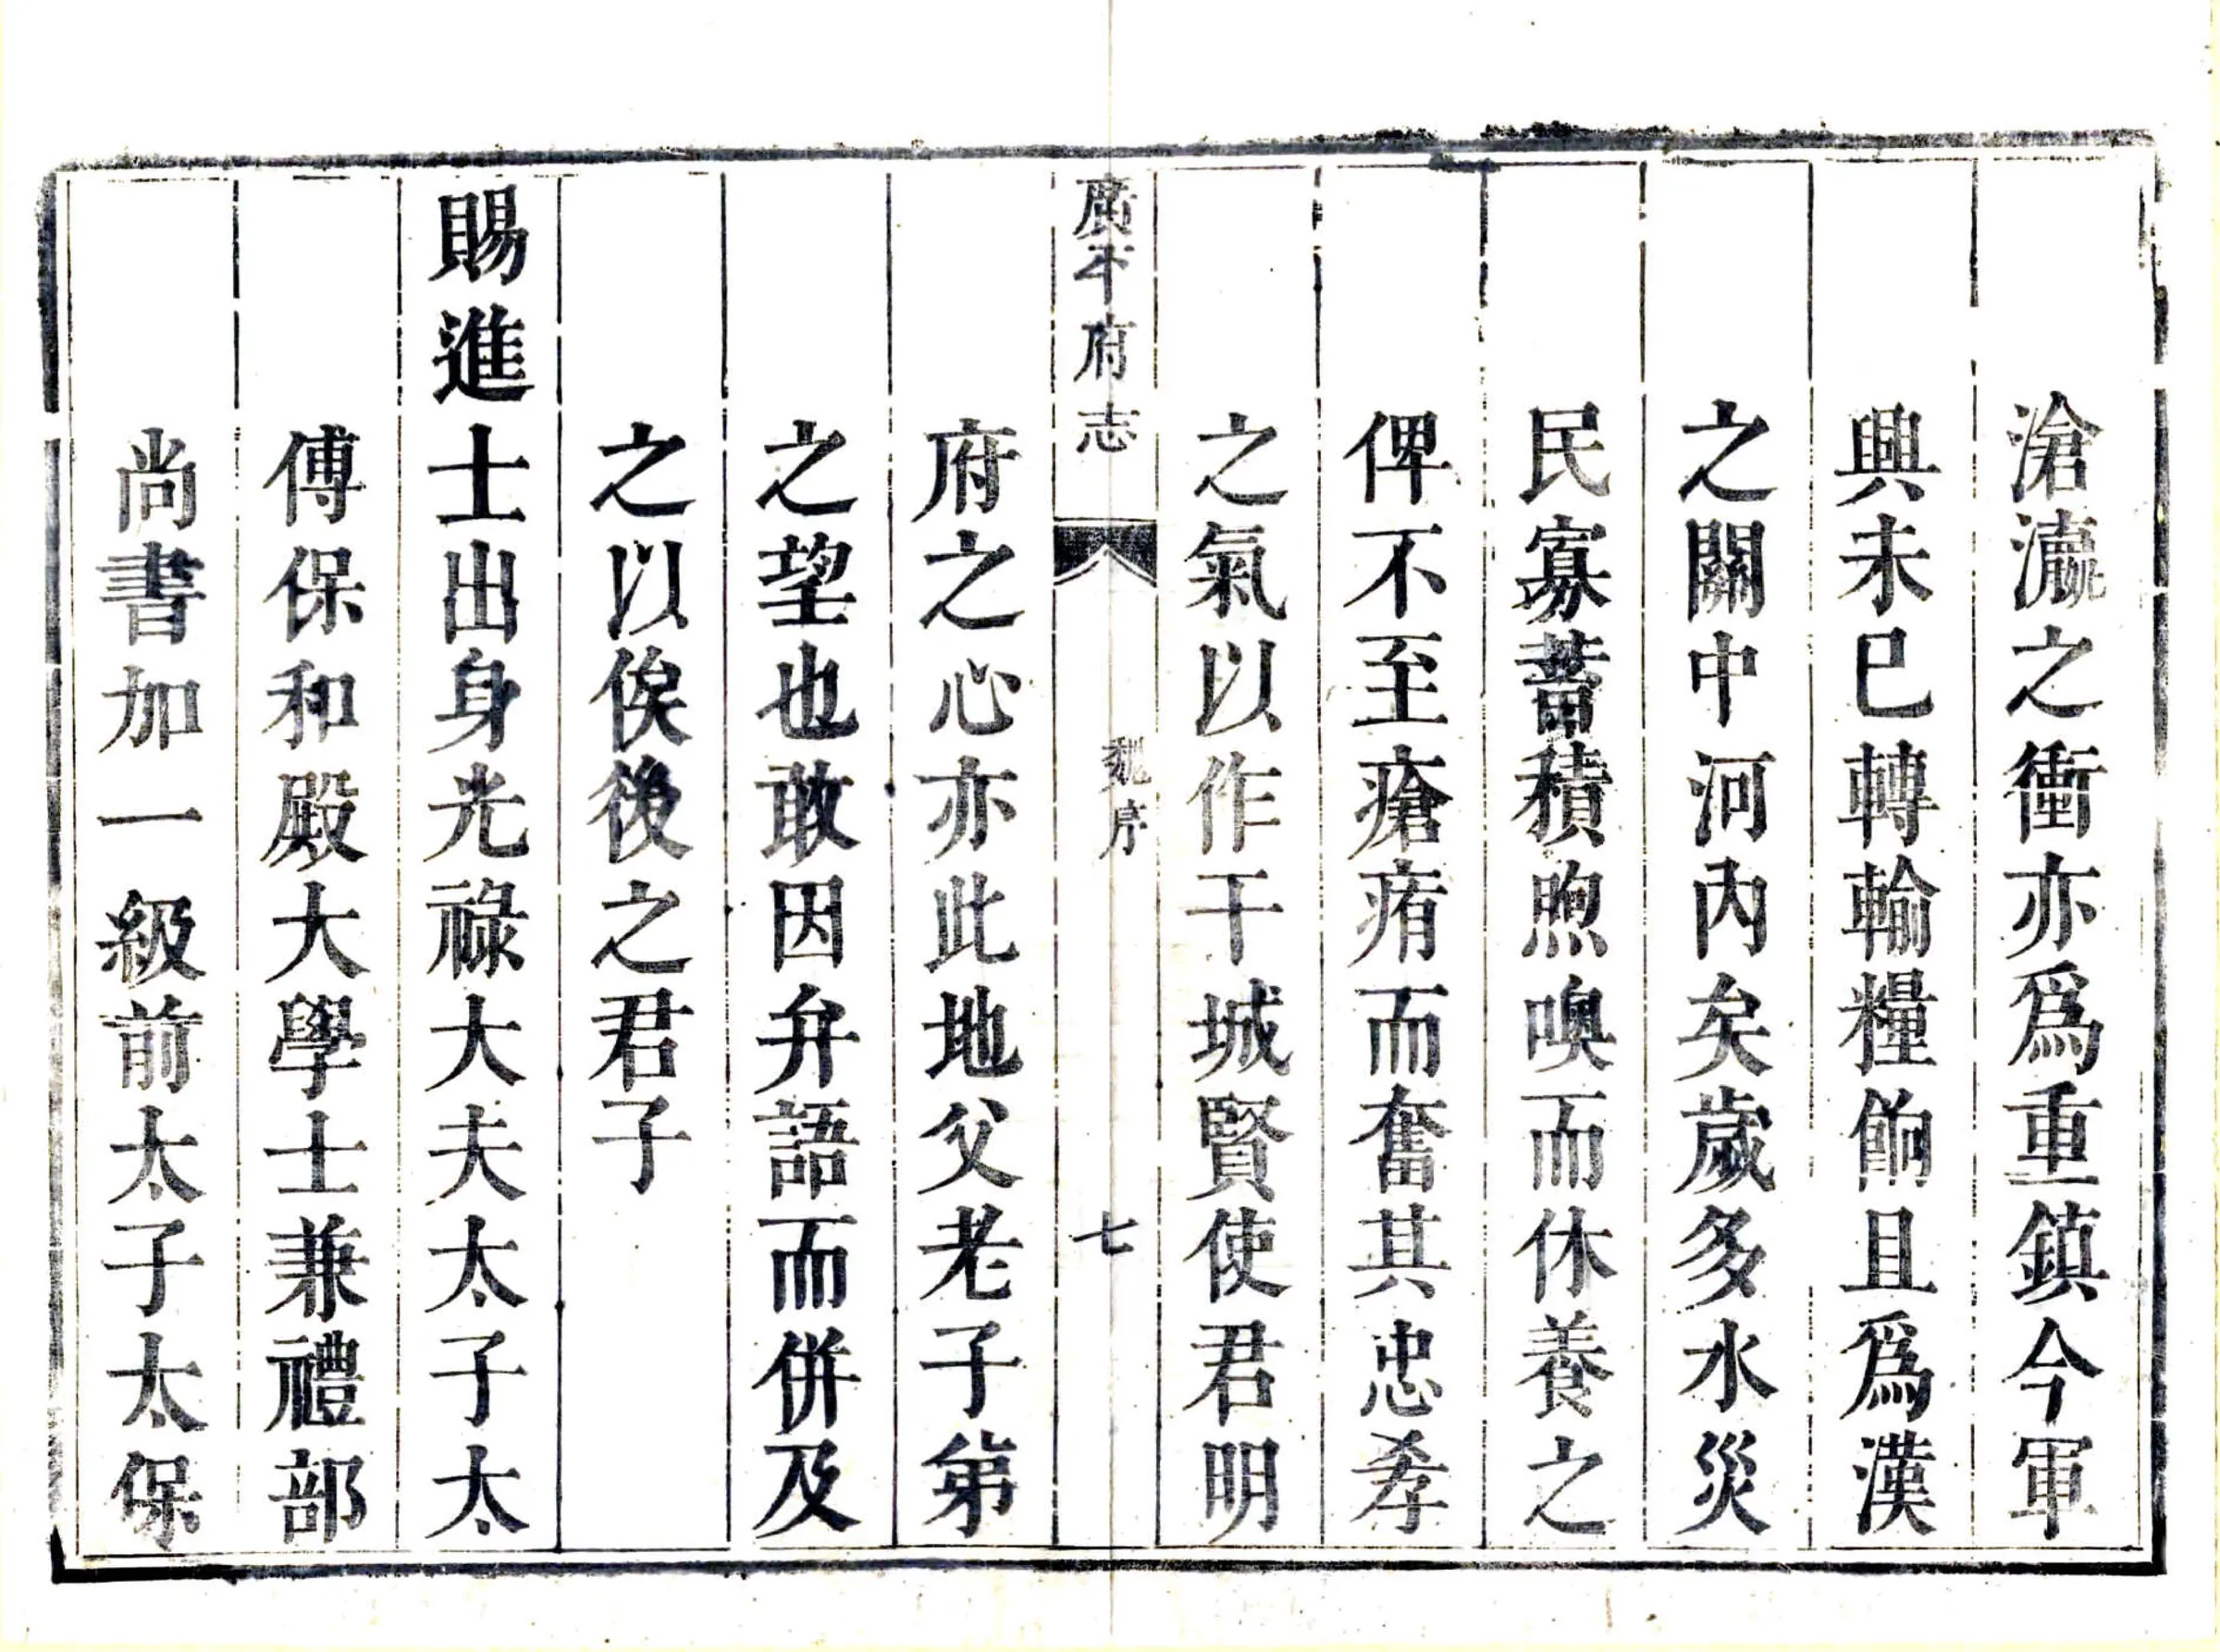 滄瀛之衝亦爲重鎮今軍
興未巳轉輸糧餉且爲漢
之關中河內矣歲多水災
民寡蓄積煦噢而休養之
俾不至瘡痏而奮其忠孝
之氣以作干城賢使君明
廣平府志
魏序
七
府之心亦此地父老子第
之望也敢因弁語而併及
之以俟後之君子
賜進士出身光祿大夫太子太
傅保和殿大學士兼禮部
尚書加一級前太子太保